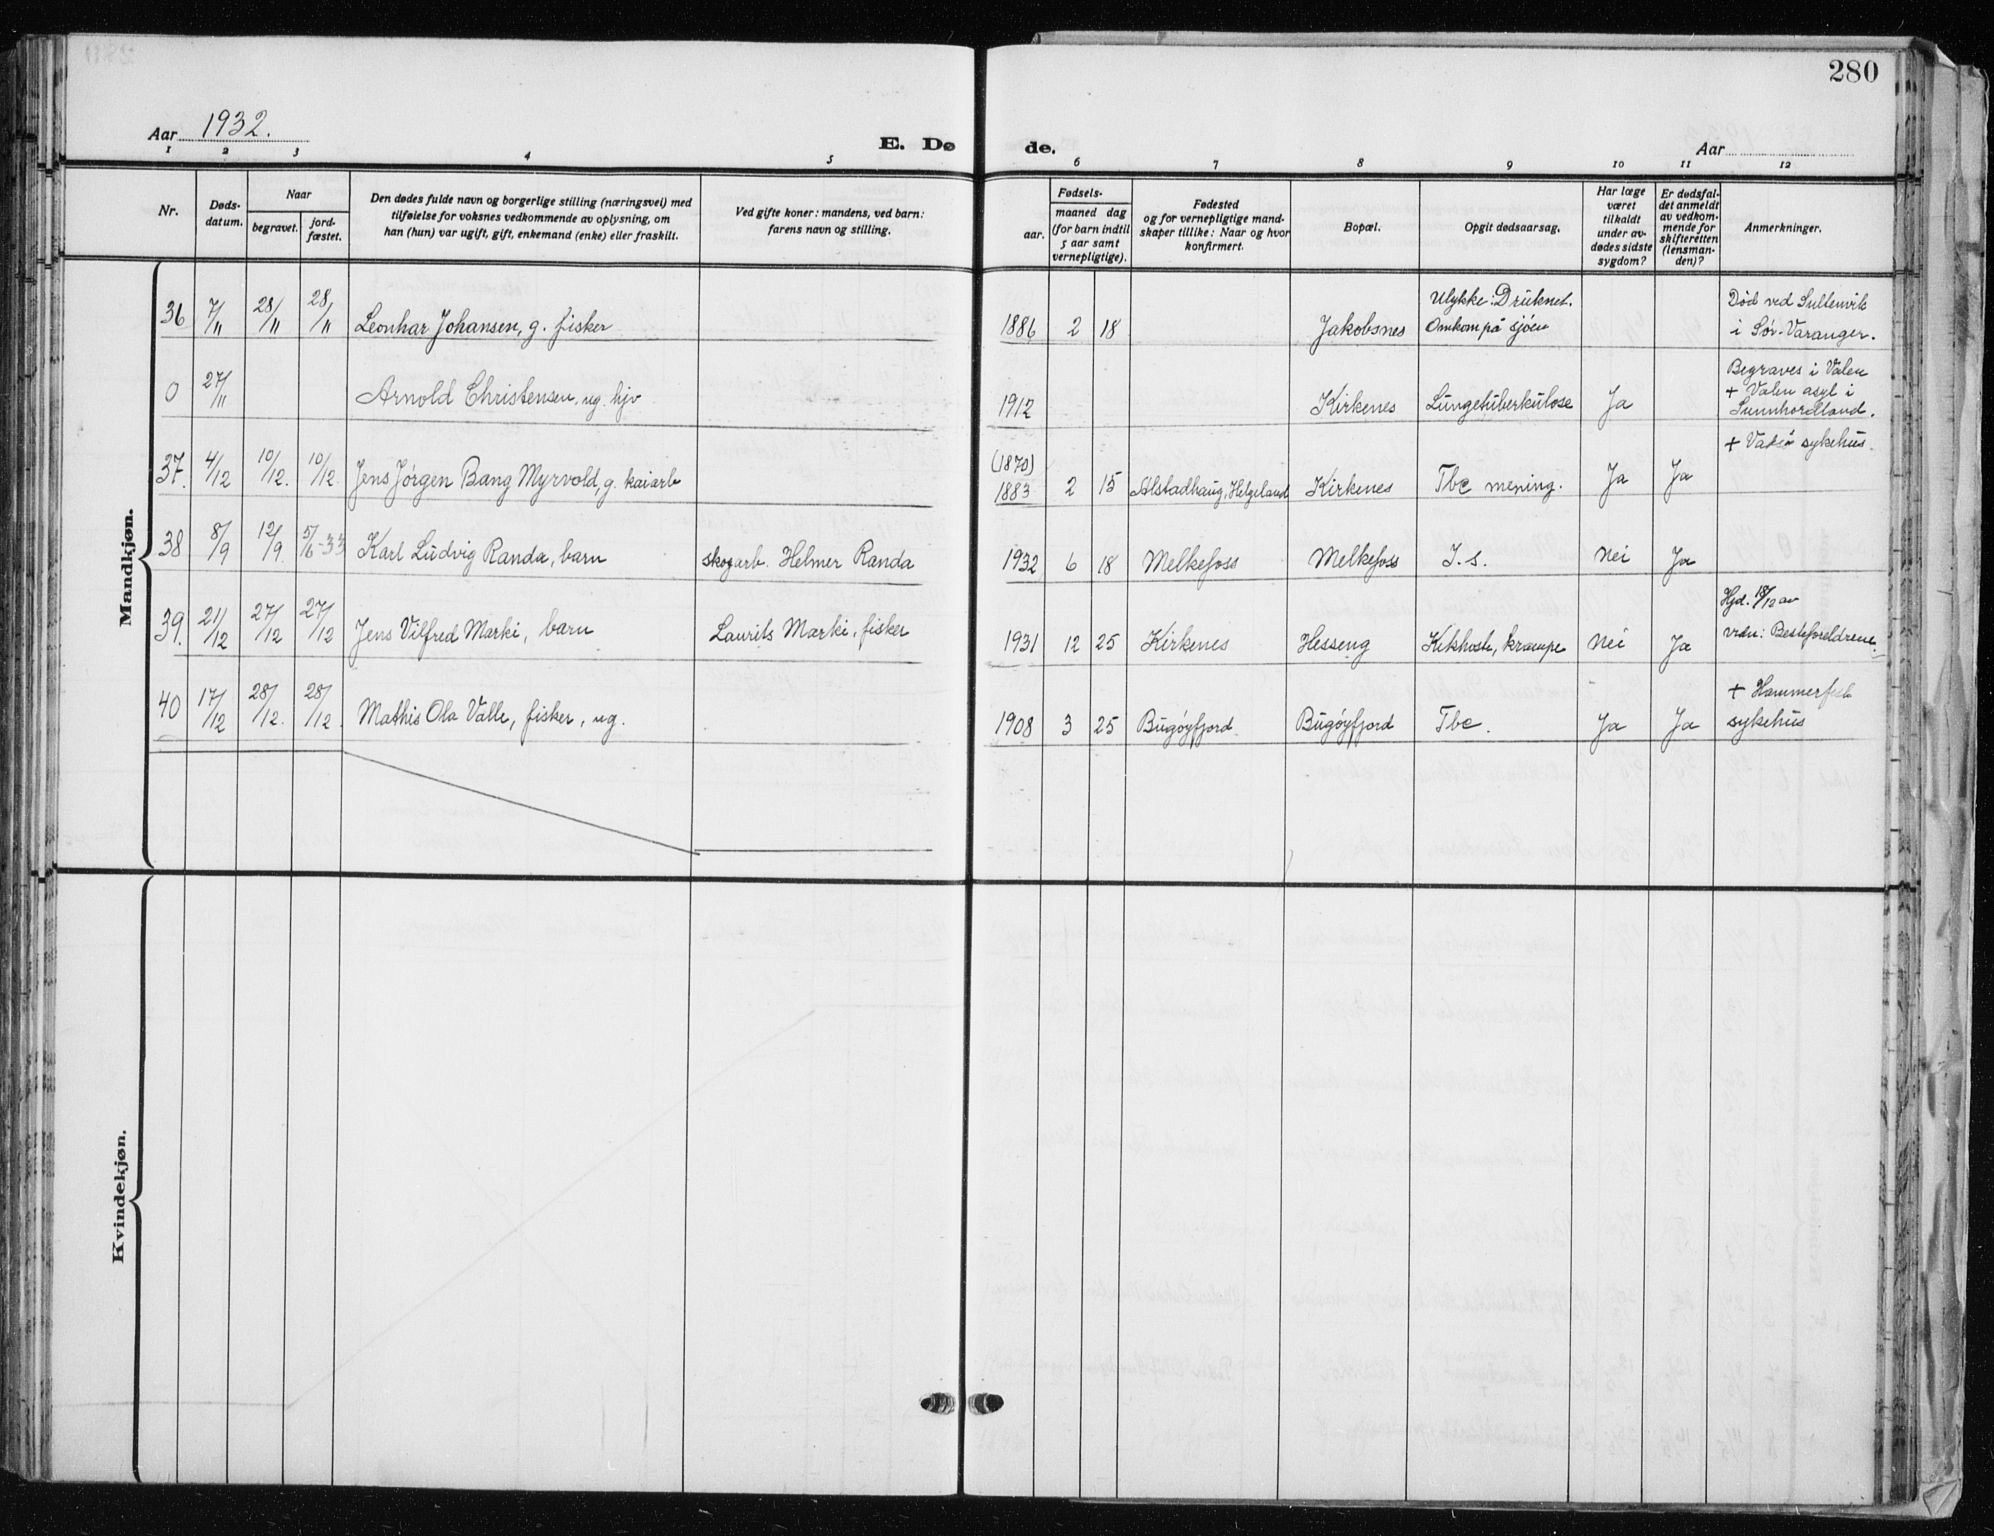 280
Aar 1932.
E. Dø
de.
Aar
1 2 3 4 5
6 7 8 9 10 11 12
Nr.
Døds-
datum.
Naar
begravet.
jord-
fæstet.
Den dødes fulde navn og borgerlige stilling (næringsvei) med
tilføielse for voksnes vedkommende av oplysning, om
han (hun) var ugift, gift, enkemand (enke) eller fraskilt.
Ved gifte koner: mandens, ved barn:
farens navn og stilling.
Fødsels-
aar.
maaned dag
(for barn indtil
5 aar samt
vernepligtige).
Fødested
og for vernepligtige mand-
skaper tillike: Naar og hvor
konfirmert.
Bopæl.
Opgit dødsaarsag.
Har læge
været
tilkaldt
under av-
dødes sidste
sygdom?
Er dødsfal-
det anmeldt
av vedkom-
mende for
skifteretten
(lensman-
den)?
Anmerkninger.
Mandkjøn.
36 7/11 28/11 28/11 Leonhar Johansen, g. fisker 1886 2 18 Jakobsnes
Ulykke: Druknet.
Omkom på sjöen
Död ved
i Sör-Varanger.
0 27/11 Arnold Christensen, ug. hjv 1912 Kirkenes Lungetuberkulose Ja
Begraves i Valen
+ Valen asyl i
Sunnhordland.
37. 4/12 10/12. 10/12. Jens Jörgen Bang Myrvold, g. kaiarb (1870)
1883 2 15 Alstadhaug, Helgeland Kirkenes Tbc mening. Ja Ja
+ Vadsö sykehus.
38 8/9 12/9. 5/6-33 Karl Ludvig Randa, barn skogarb. Helmer Randa 1932 6 18 Melkefoss Melkefoss I. s. Nei Ja
39. 21/12 27/12 27/12 Jens Vilfred Marki, barn Laurits Marki, fisker 1931 12 25 Kirkenes Hesseng Kikhoste, krampe Nei Ja
Hjd. 18/12 av
vedn: Besteforeldrene.
40 17/12 28/12. 28/12. Mathis Ola Valle, fisker, ug. 1908 3 25 Bugöyfjord Bugöyfjord Tbc. Ja Ja
+ Hammerfest
sykehus
Kvindekjøn.